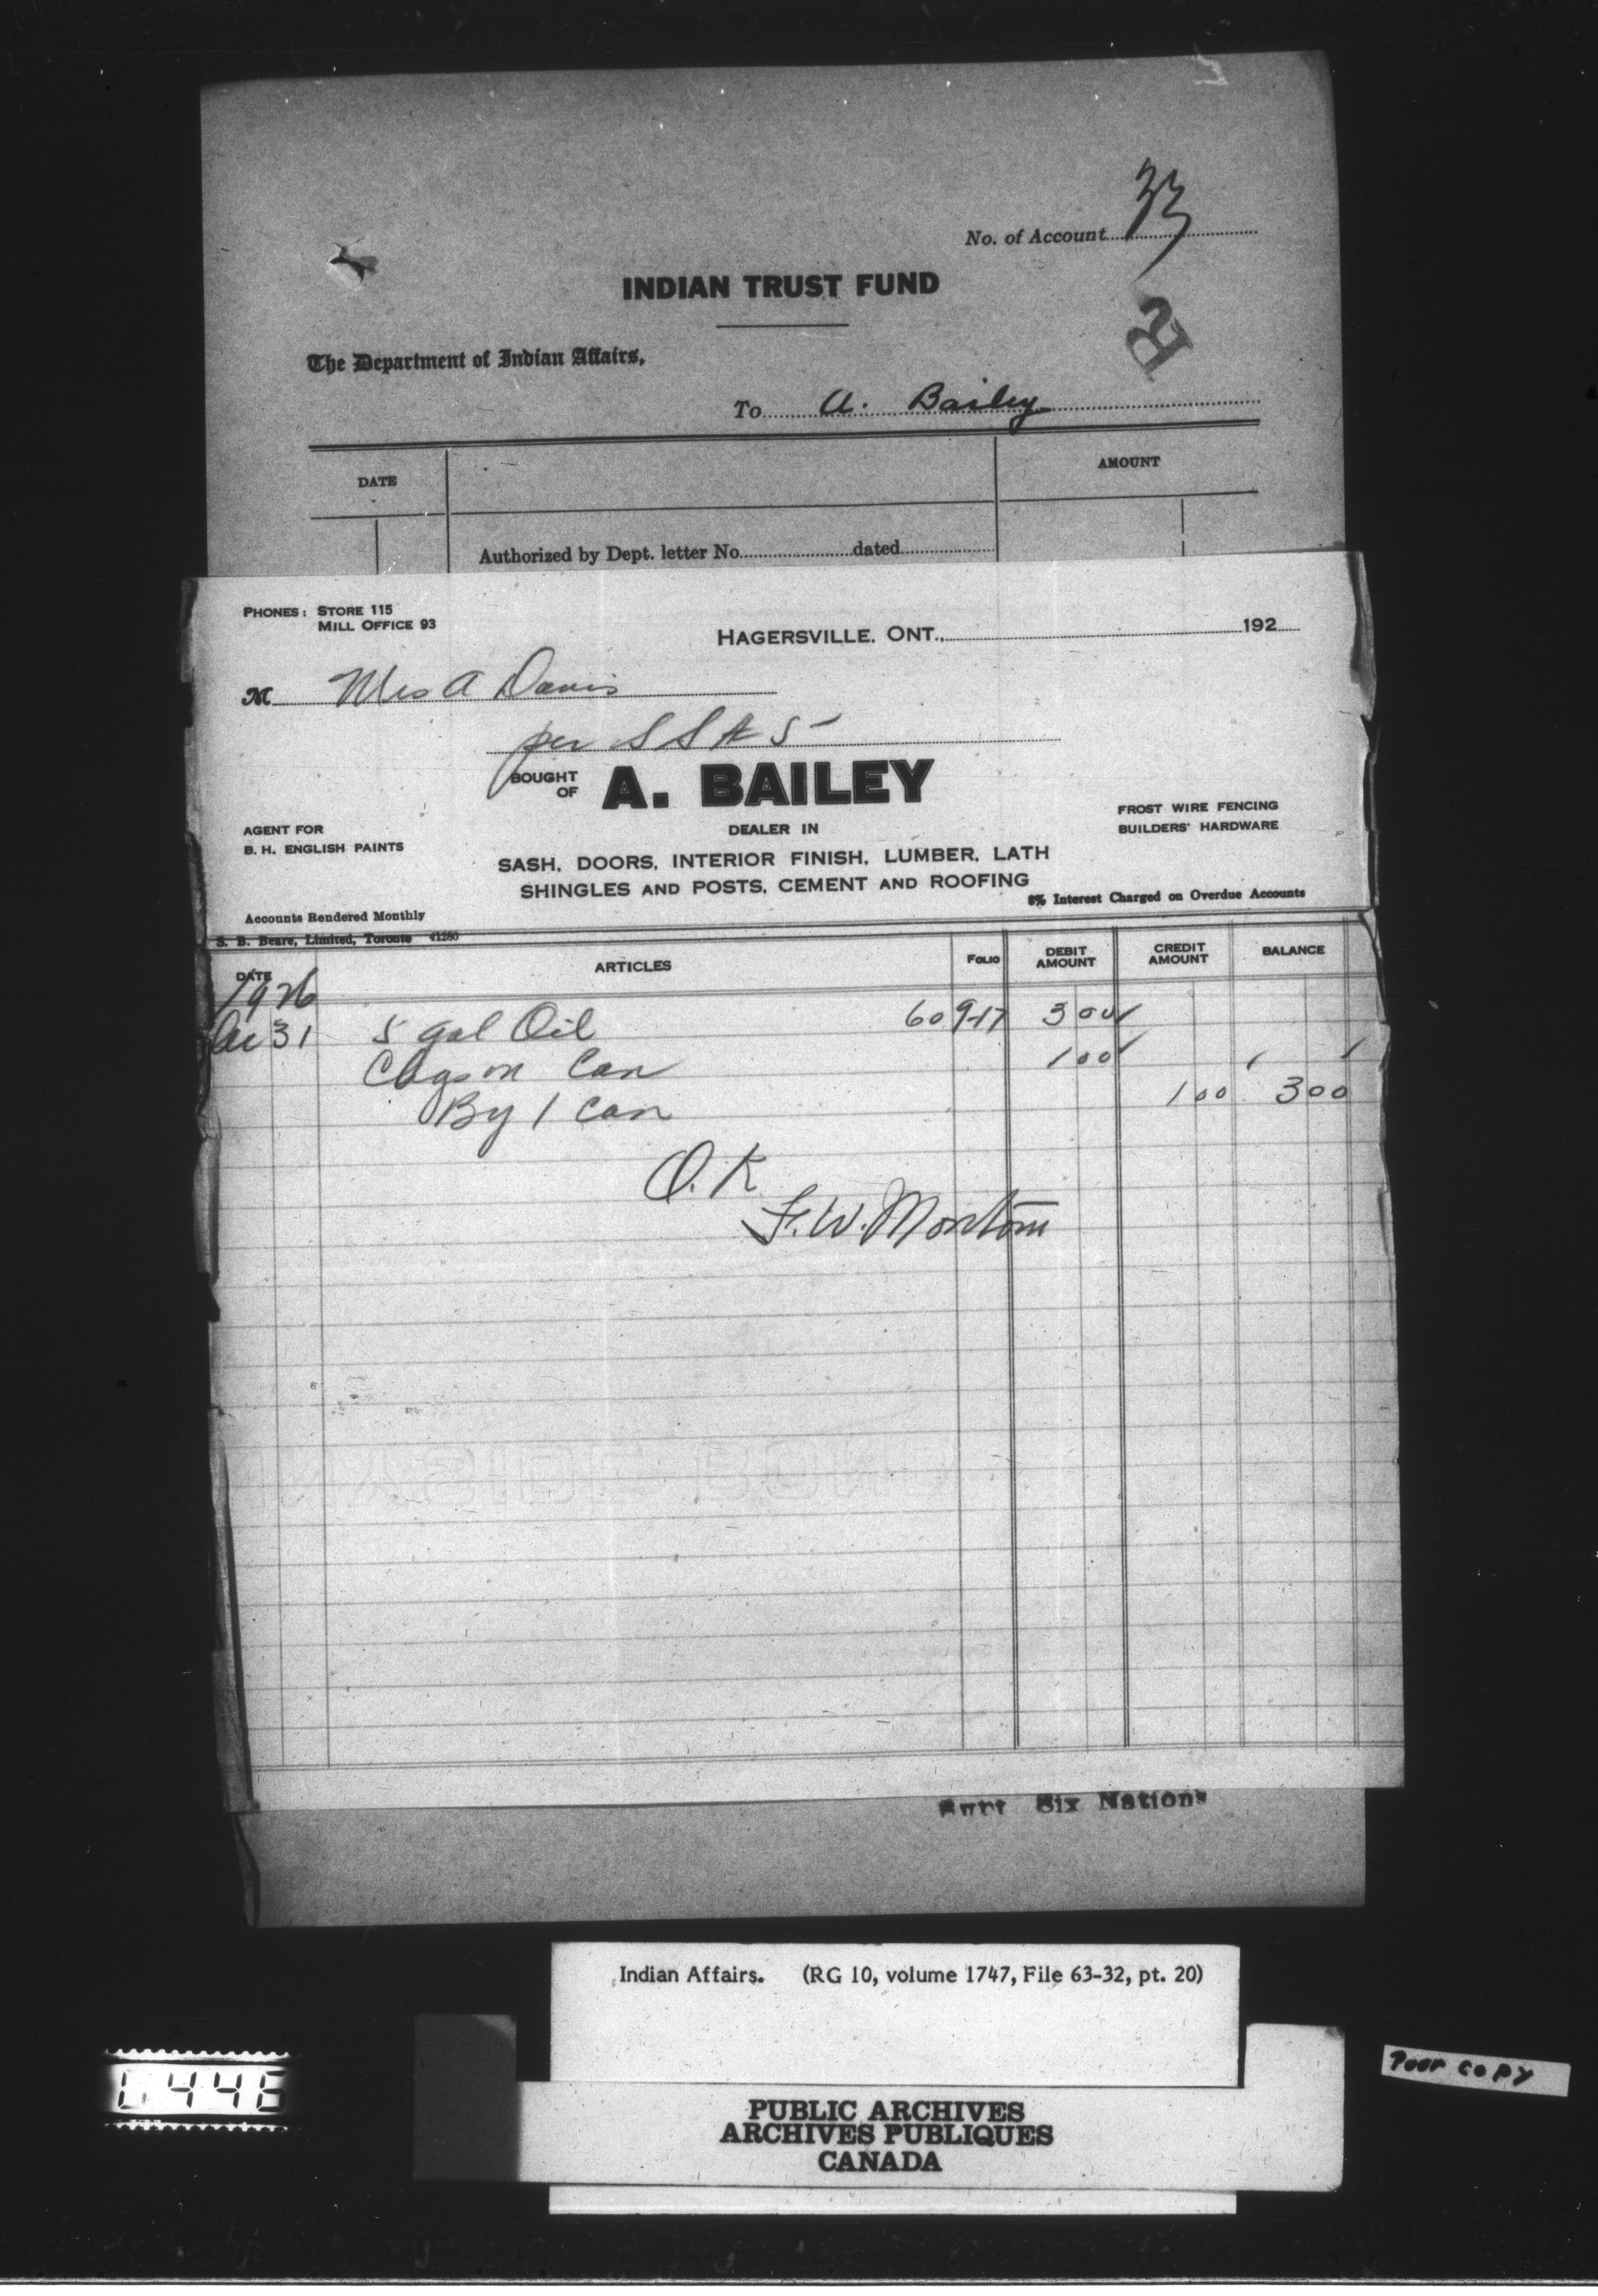 No. of Account 33
INDIAN TRUST FUND
R
The Department of Indian Affairs,
To A. Bailey
DATE AMOUNT
Authorized by Dept. letter No. dated
PHONES: STORE 115
MILL OFFICE 93
HAGERSVILLE, ONT., 192
M Mrs A Davis
per S S # 5
BOUGHT OF A. BAILEY
DEALER IN
AGENT FOR
B. H. ENGLISH PAINTS
FROST WIRE FENCING
BUILDERS' HARDWARE
SASH, DOORS, INTERIOR FINISH, LUMBER, LATH
SHINGLES AND POSTS, CEMENT AND ROOFING
Accounts Rendered Monthly
8% Interest Charged on Overdue Accounts
S. B. Beare, Limited, Toronto 41280
DATE ARTICLES FOLIO DEBIT AMOUNT CREDIT AMOUNT BALANCE
1926
31 5 gal Oil 60 9-17 3 00
Chgs on Can 1 00
By 1 Can 1 00 3 00
O.K
F. W.
Six Nations
Indian Affairs. (RG 10, volume 1747, File 63-32, pt. 20)
446
Poor copy
PUBLIC ARCHIVES
ARCHIVES PUBLIQUES
CANADA